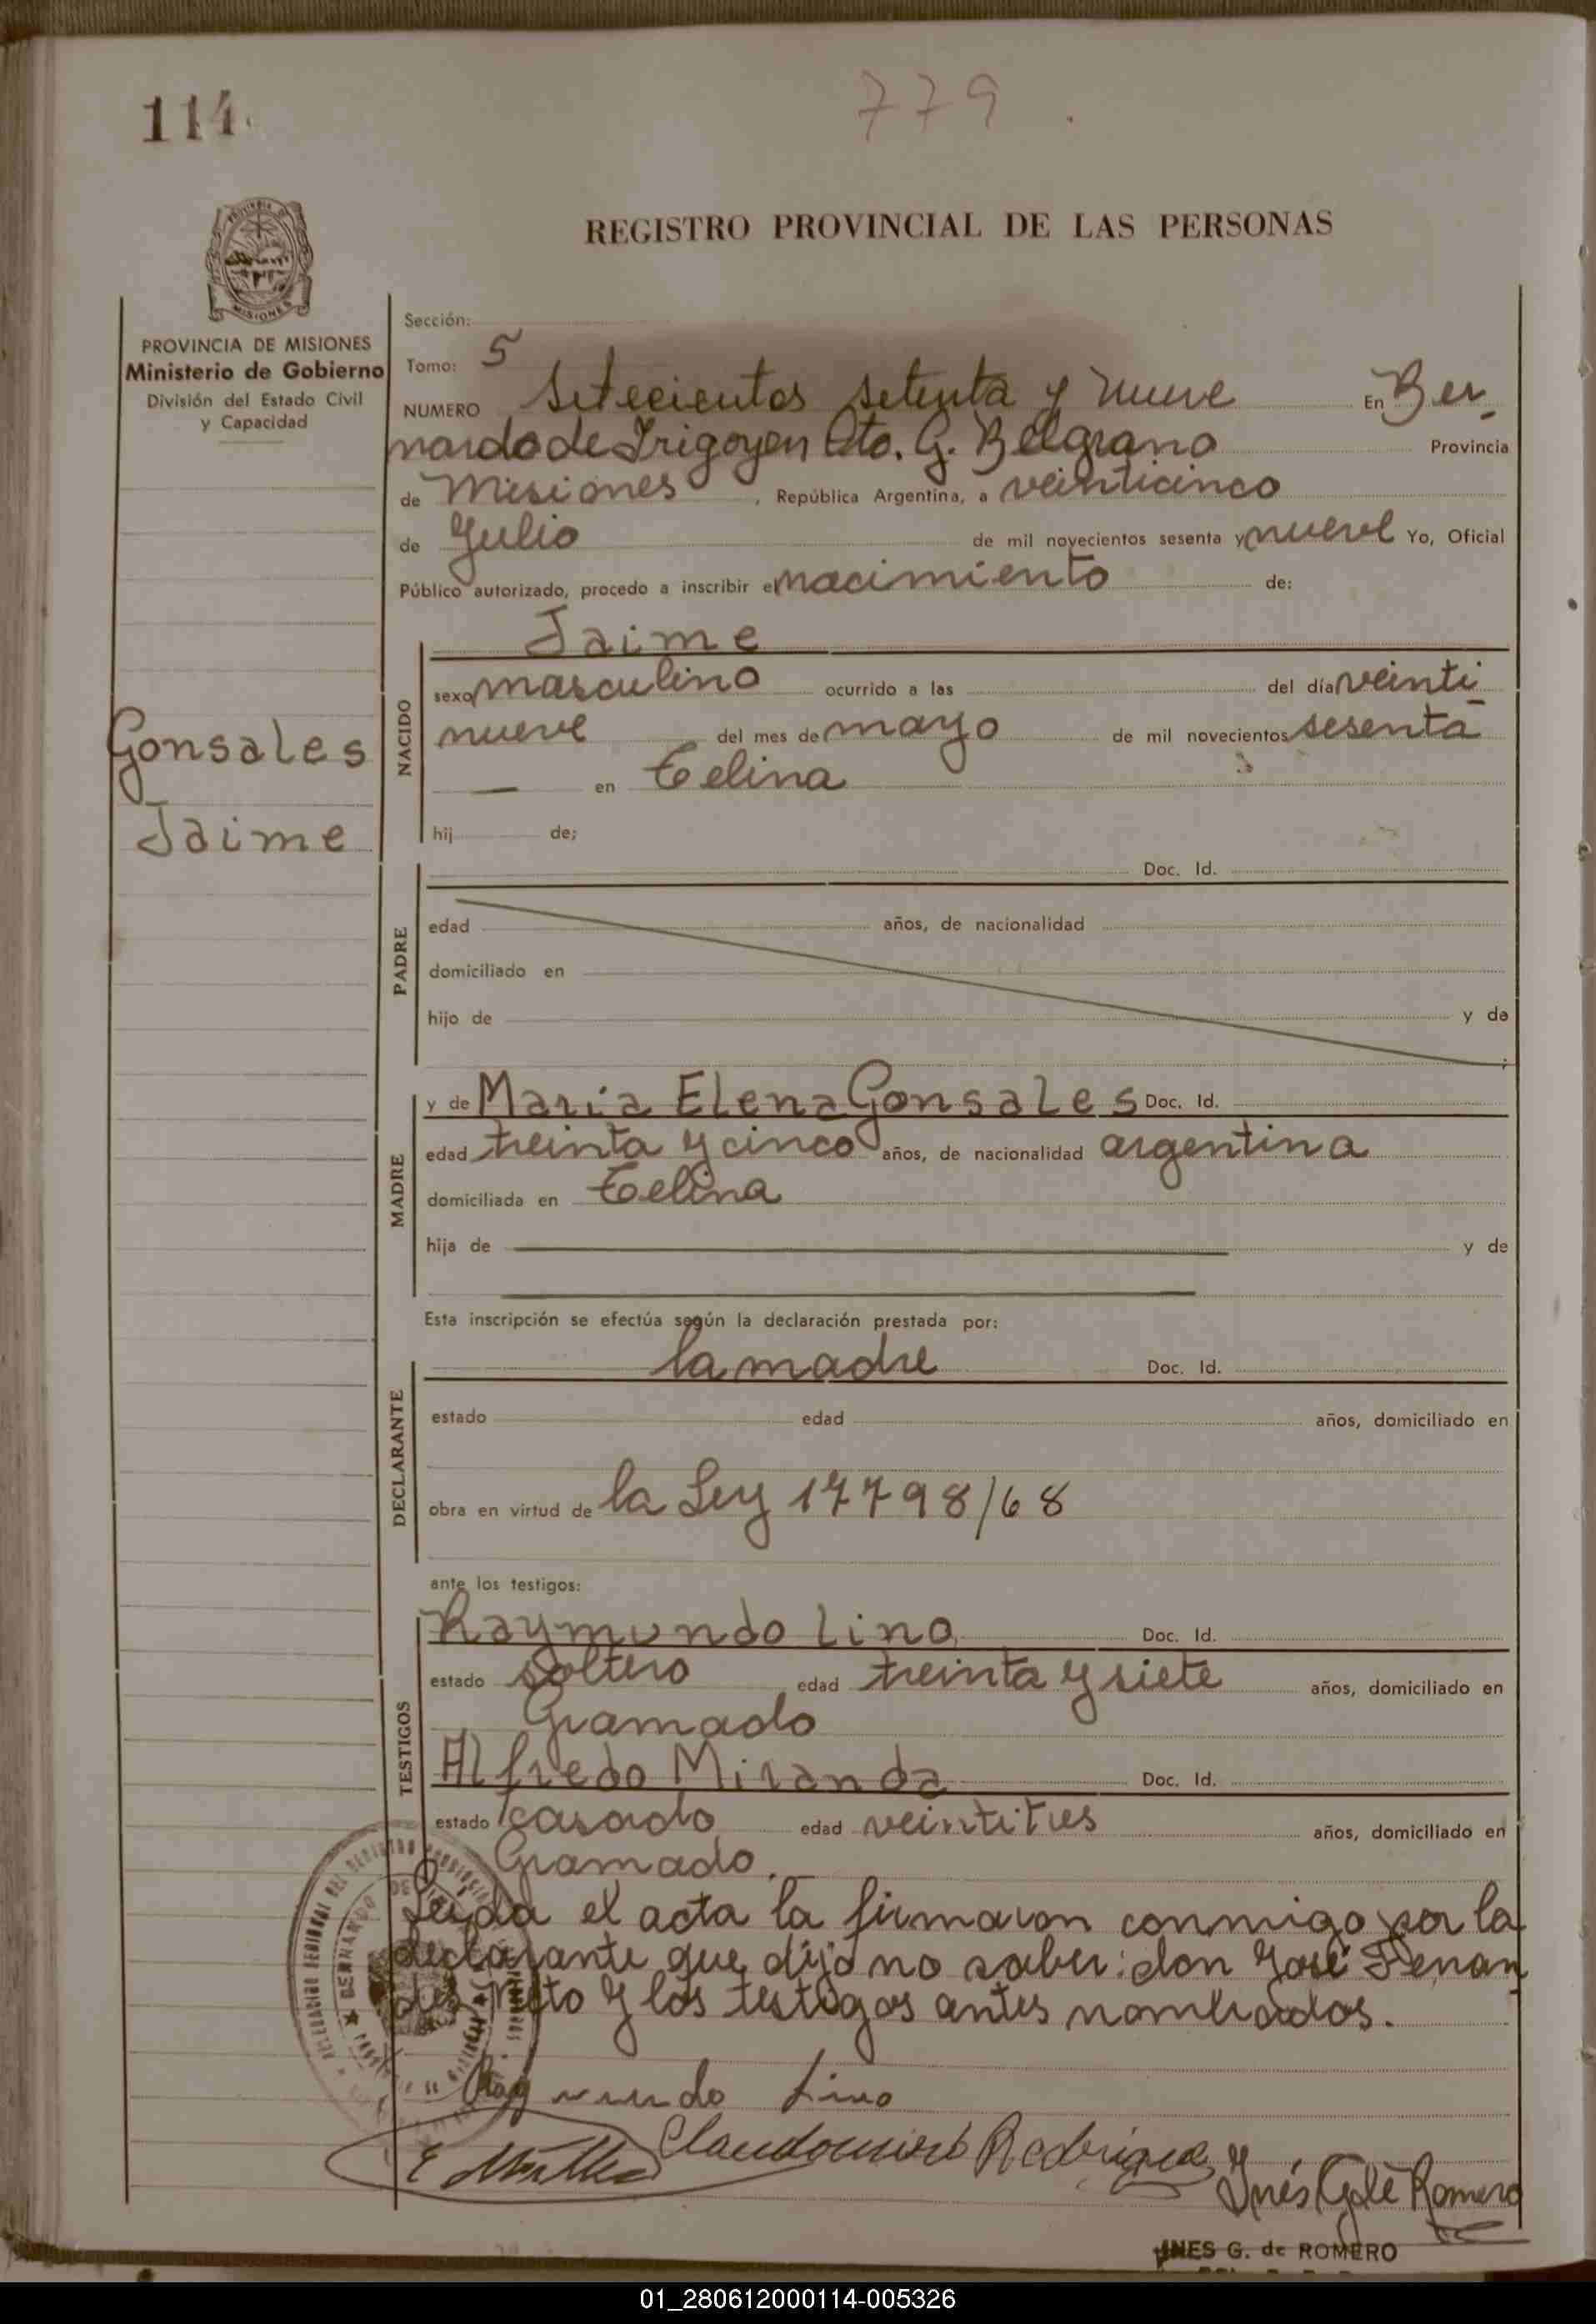 114
779.
REGISTRO PROVINCIAL DE LAS PERSONAS
MISIONES
PROVINCIA DE MISIONES
Ministerio de Gobierno
División del Estado Civil
y Capacidad
Gonsales
Jaime
Sección:
Tomo: 5
NUMERO Setecientos setenta y nueve En Ber
nardo de Irigoyen Dto. G. Belgrano Provincia
de Misiones, República Argentina, a veinticinco
de Julio de mil novecientos sesenta y nueve Yo, Oficial
Público autorizado, procedo a inscribir el nacimiento de:
NACIDO
Jaime
sexo masculino ocurrido a las del día veinti
nueve del mes de mayo de mil novecientos sesenta
— en Celina
hij de;
PADRE
Doc. Id.
edad años, de nacionalidad
domiciliado en
hijo de y de
;
MADRE
y de Maria Elena Gonsales Doc. Id.
edad treinta y cinco años, de nacionalidad argentina
domiciliada en Celina
hija de y de
Esta inscripción se efectúa según la declaración prestada por:
DECLARANTE
la madre Doc. Id.
estado edad años, domiciliado en
obra en virtud de la Ley 17798/68
ante los testigos:
TESTIGOS
Raymundo Lino Doc. Id.
estado soltero edad treinta y siete años, domiciliado en
Gramado
Alfredo Miranda Doc. Id.
estado casado edad veintitres años, domiciliado en
Gramado.
Leída el acta la firmaron conmigo por la
declarante que dijo no saber: don José Fenan
des Neto y los testigos antes nombrados.
Raymundo Lino
Claudomiro Rodriguez
Inés Romero
INES G. de ROMERO
01_280612000114-005326